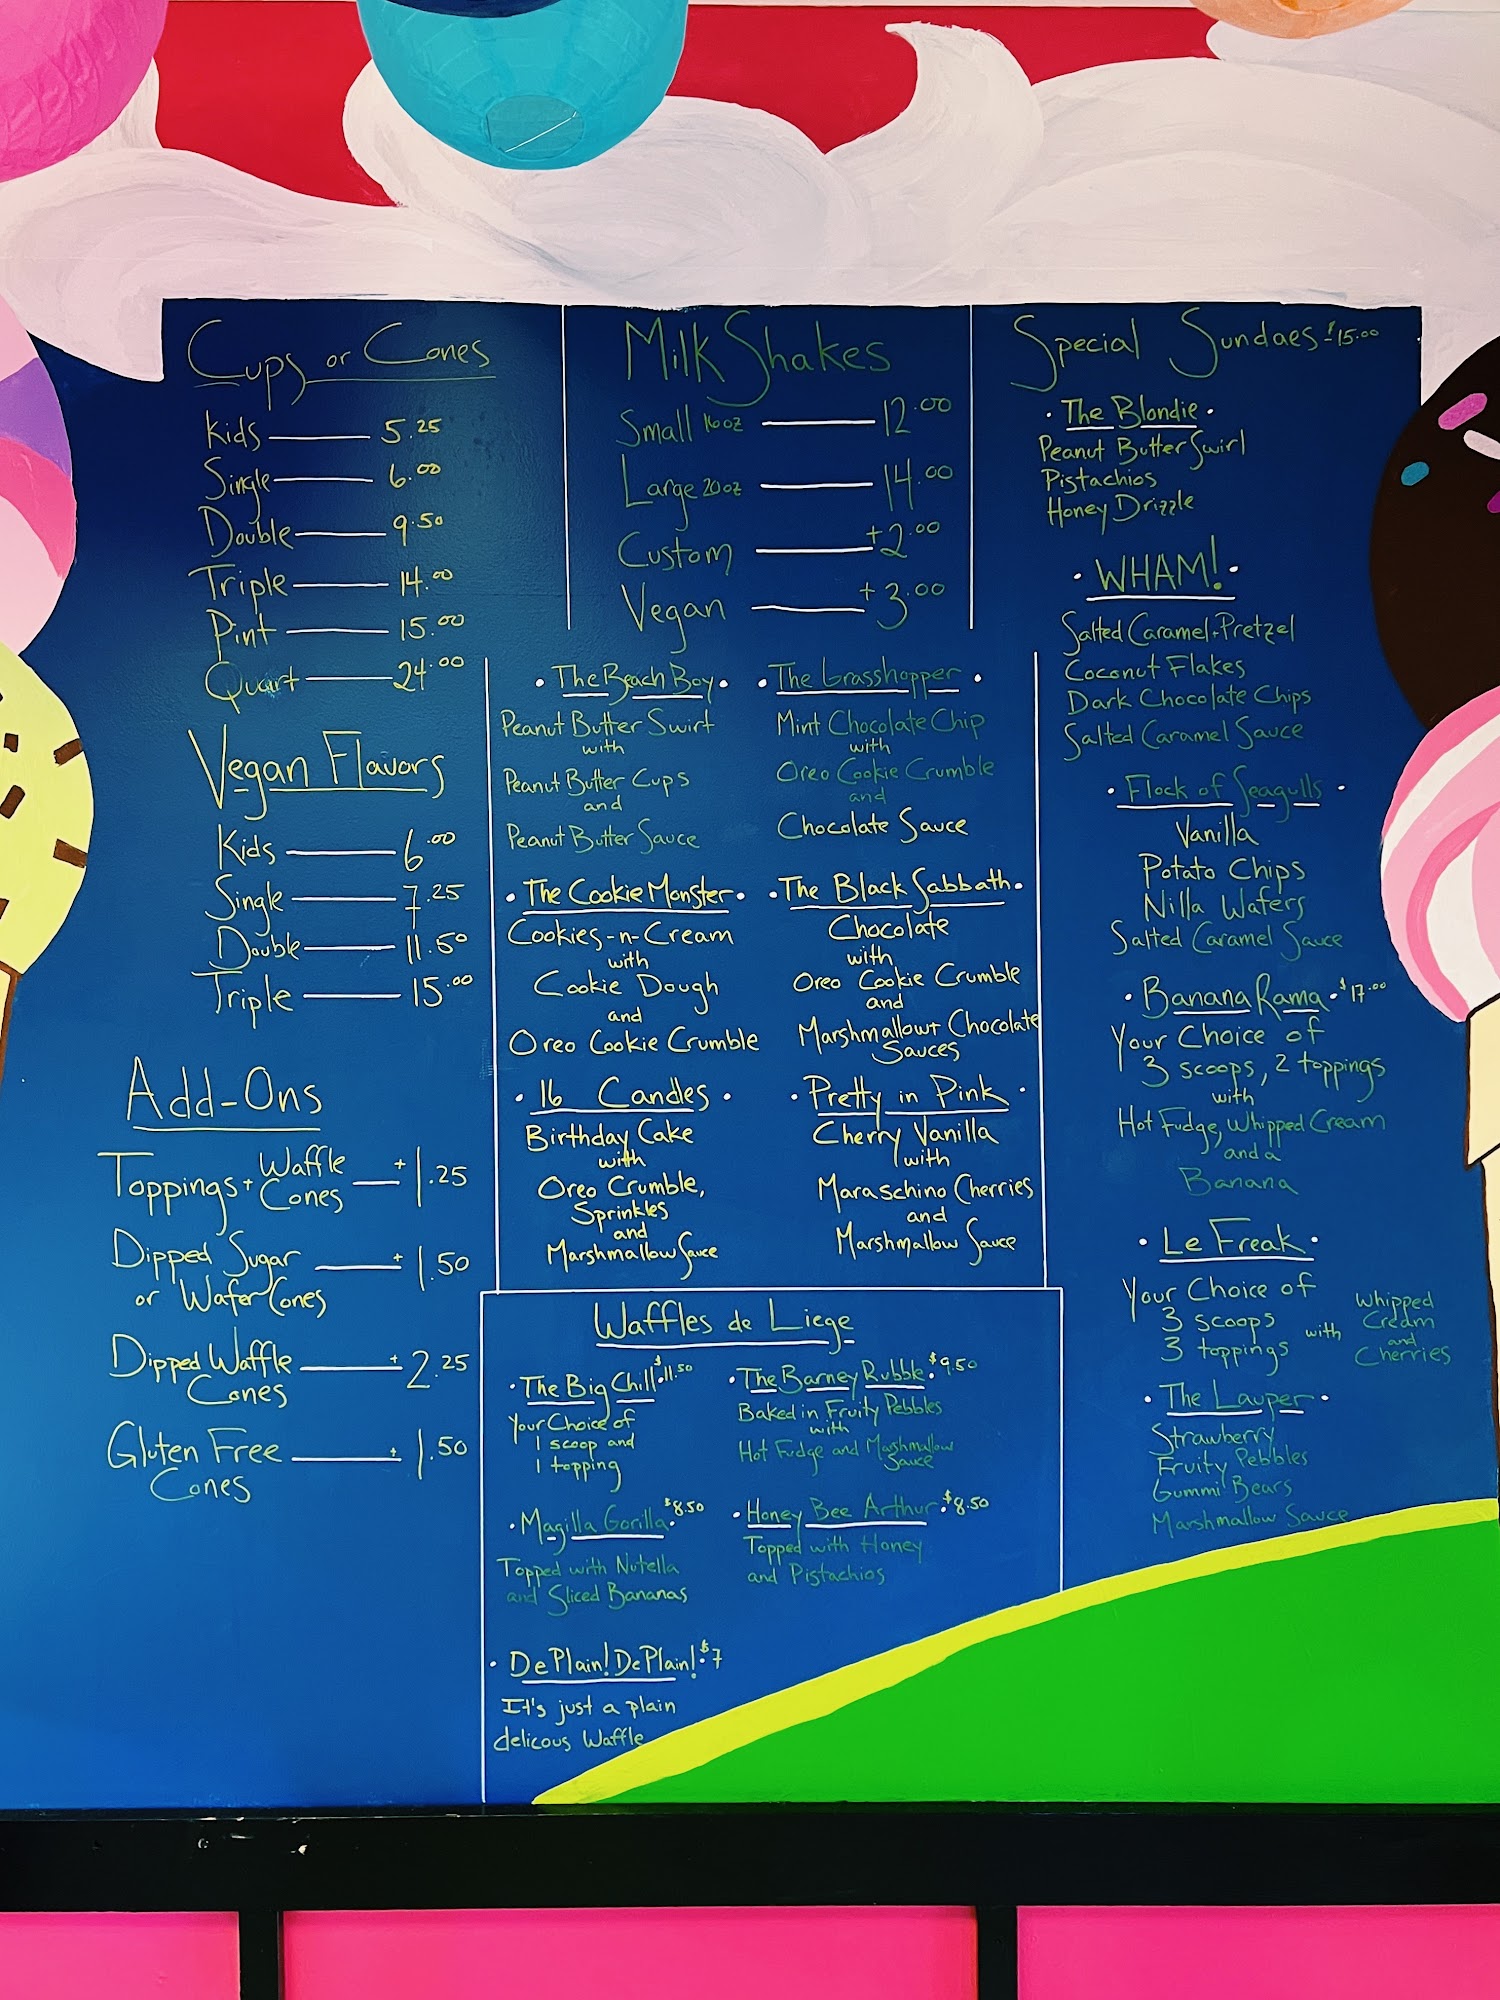 Cups or Cones
Kids 5.25
Single 6.00
Double 9.50
Triple 14.00
Pint 15.00
Quart 24.00
Vegan Flavors
Kids 6.00
Single 7.25
Double 11.50
Triple 15.00
Add-Ons
Toppings + Waffle Cones +1.25
Dipped Sugar +1.50
or Wafer Cones
Dipped Waffle +2.25
Cones
Gluten Free +1.50
Cones
MilkShakes
Small 16oz 12.00
Large 20oz 14.00
Custom +2.00
Vegan +3.00
· The Beach Boy ·
Peanut Butter Swirl
with
Peanut Butter Cups
and
Peanut Butter Sauce
· The Grasshopper ·
Mint Chocolate Chip
with
Oreo Cookie Crumble
and
Chocolate Sauce
· The Cookie Monster ·
Cookies-n-Cream
with
Cookie Dough
and
Oreo Cookie Crumble
· The Black Sabbath ·
Chocolate
with
Oreo Cookie Crumble
and
Marshmallow + Chocolate
Sauces
· 16 Candles ·
Birthday Cake
with
Oreo Crumble,
Sprinkles
and
Marshmallow Sauce
· Pretty in Pink ·
Cherry Vanilla
with
Maraschino Cherries
and
Marshmallow Sauce
Waffles de Liege
· The Big Chill · $11.50
Your Choice of
1 scoop and
1 topping
· The Barney Rubble · $9.50
Baked in Fruity Pebbles
with
Hot Fudge and Marshmallow
Sauce
· Magilla Gorilla · $8.50
Topped with Nutella
and Sliced Bananas
· Honey Bee Arthur · $8.50
Topped with Honey
and Pistachios
· De Plain! De Plain! · $7
It's just a plain
delicous Waffle
Special Sundaes - $15.00
· The Blondie ·
Peanut Butter Swirl
Pistachios
Honey Drizzle
· WHAM! ·
Salted Caramel + Pretzel
Coconut Flakes
Dark Chocolate Chips
Salted Caramel Sauce
· Flock of Seagulls ·
Vanilla
Potato Chips
Nilla Wafers
Salted Caramel Sauce
· Banana Rama · $17.00
Your Choice of
3 scoops, 2 toppings
with
Hot Fudge, Whipped Cream
and a
Banana
· Le Freak ·
Your Choice of
3 scoops
3 toppings
with
Whipped
Cream
and
Cherries
· The Lauper ·
Strawberry
Fruity Pebbles
Gummi Bears
Marshmallow Sauce